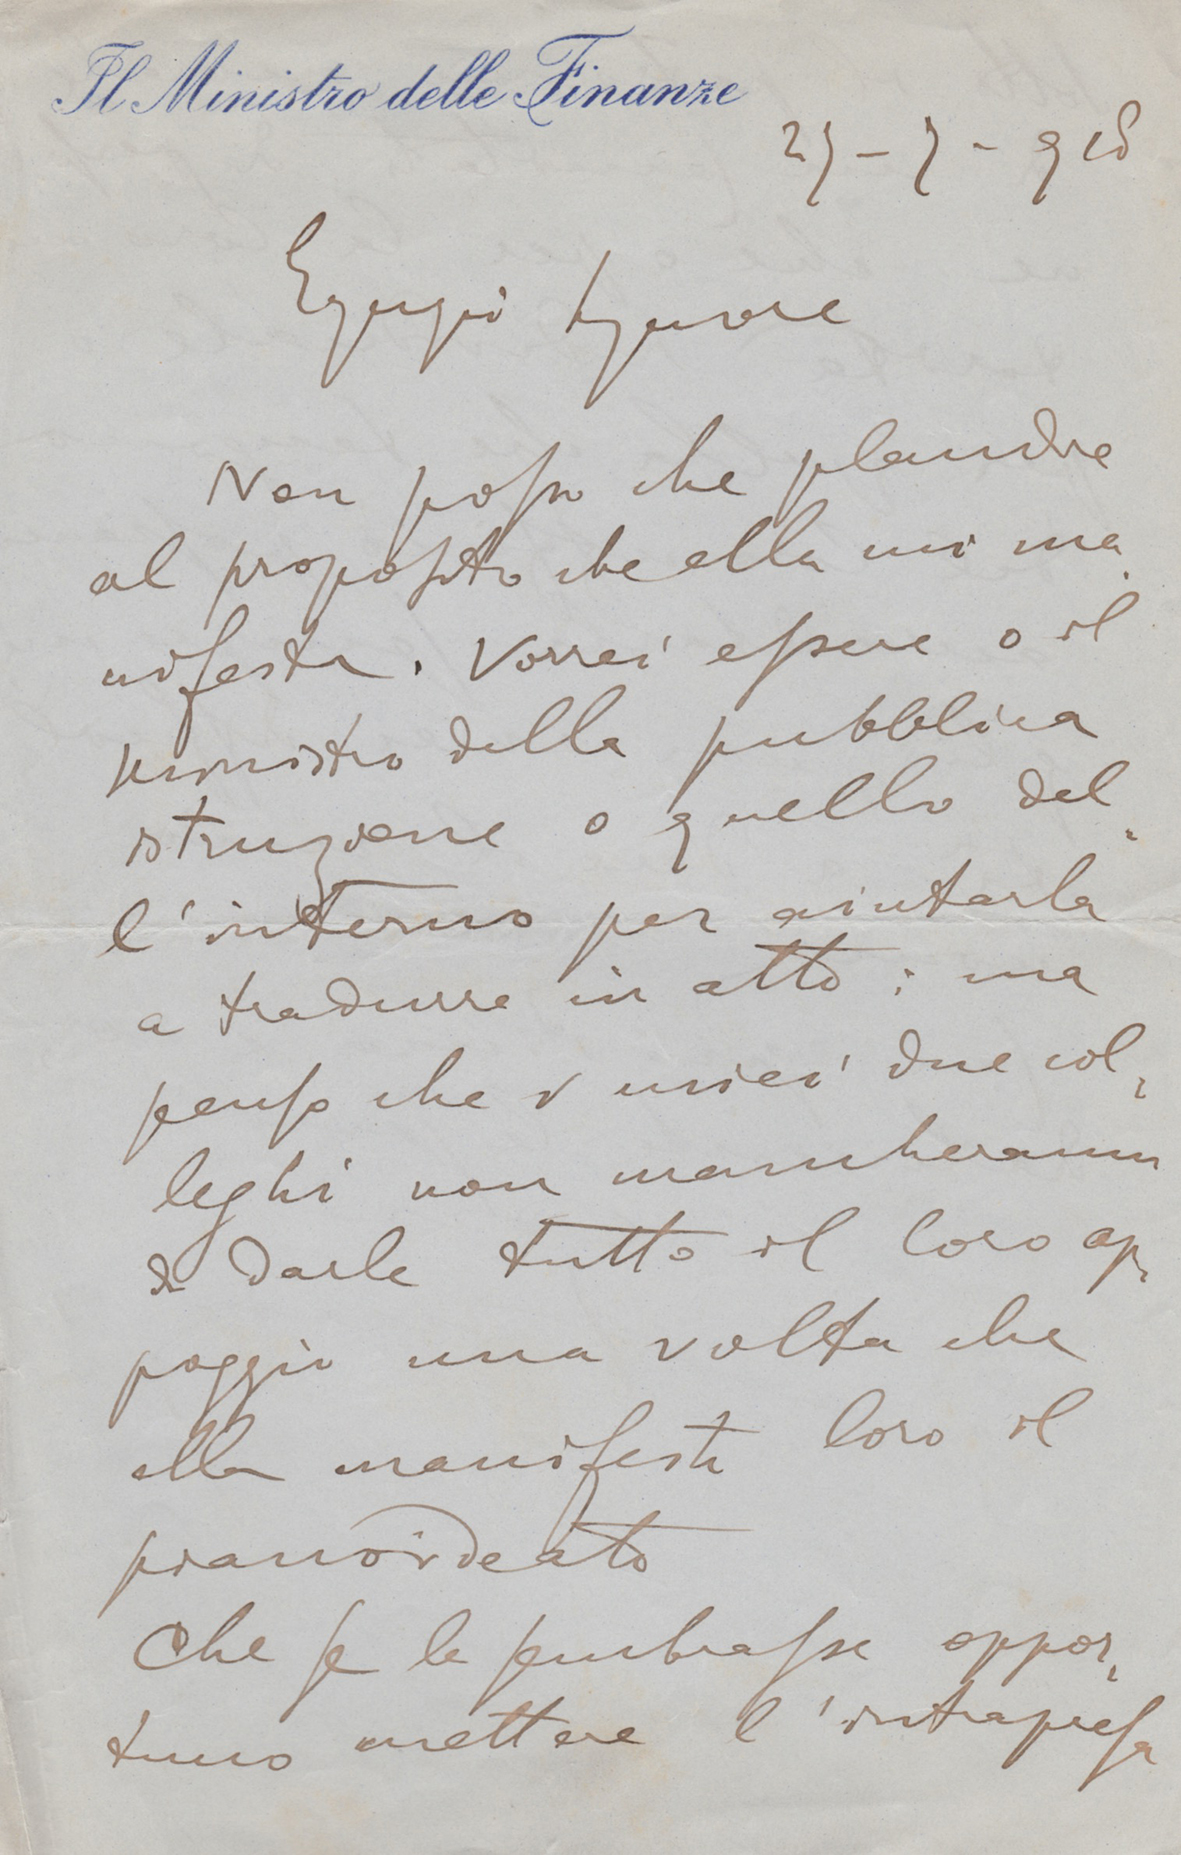 Il Ministro delle Finanze
27-7-918
Egregio Signore
Non posso che plaudire
al proposito che ella mi ma
nifesta. Vorrei essere o il
ministro della pubblica
istruzione o quello del
l'interno per aiutarla
a tradurre in atto: ma
penso che i miei due col
leghi non mancheranno
di darle tutto il loro ap
poggio una volta che
ella manifesti loro il
piano ideato
Che se le sembrasse oppor
tuno mettere l'intrapresa